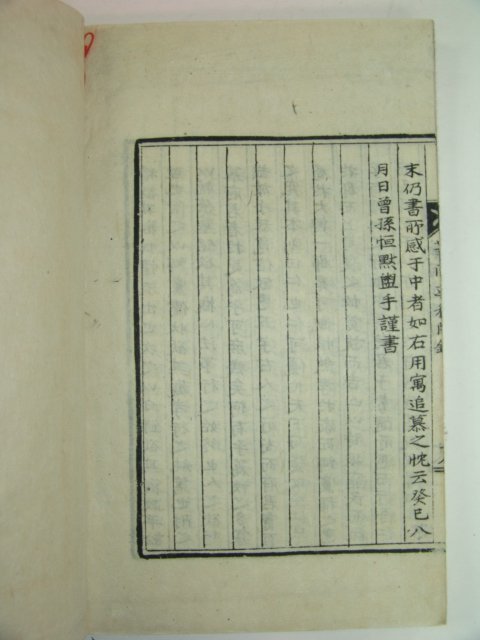 末仍書所感于中者如右用寓追慕之忱云癸巳八
月日曾孫恒默盥手謹書